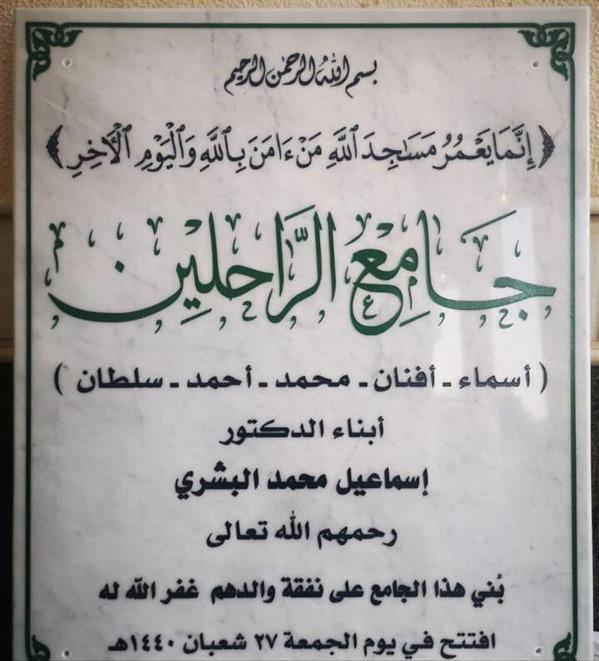 بسم الله الرحمن الرحيم
﴿ إِنَّمَا يَعْمُرُ مَسَاجِدَ اللَّهِ مَنْ ءَامَنَ بِاللَّهِ وَالْيَوْمِ الْآخِرِ ﴾
جَامِع الرَّاحلين
( أسماء ـ أفنان ـ محمد ـ أحمد ـ سلطان )
أبناء الدكتور
إسماعيل محمد البشري
رحمهم الله تعالى
بُني هذا الجامع على نفقة والدهم غفر الله له
افتتح في يوم الجمعة ٢٧ شعبان ١٤٤٠هـ